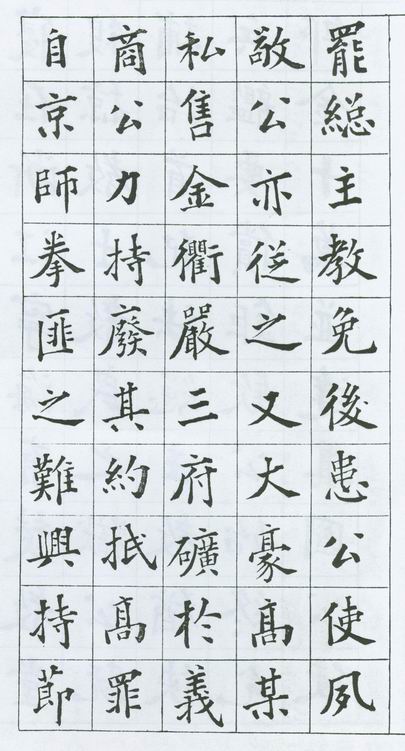 罷總主教免後患公使夙
敬公亦從之又大豪高某
私售金衢嚴三府礦於義
商公力持廢其約抵高罪
自京師拳匪之難興持節